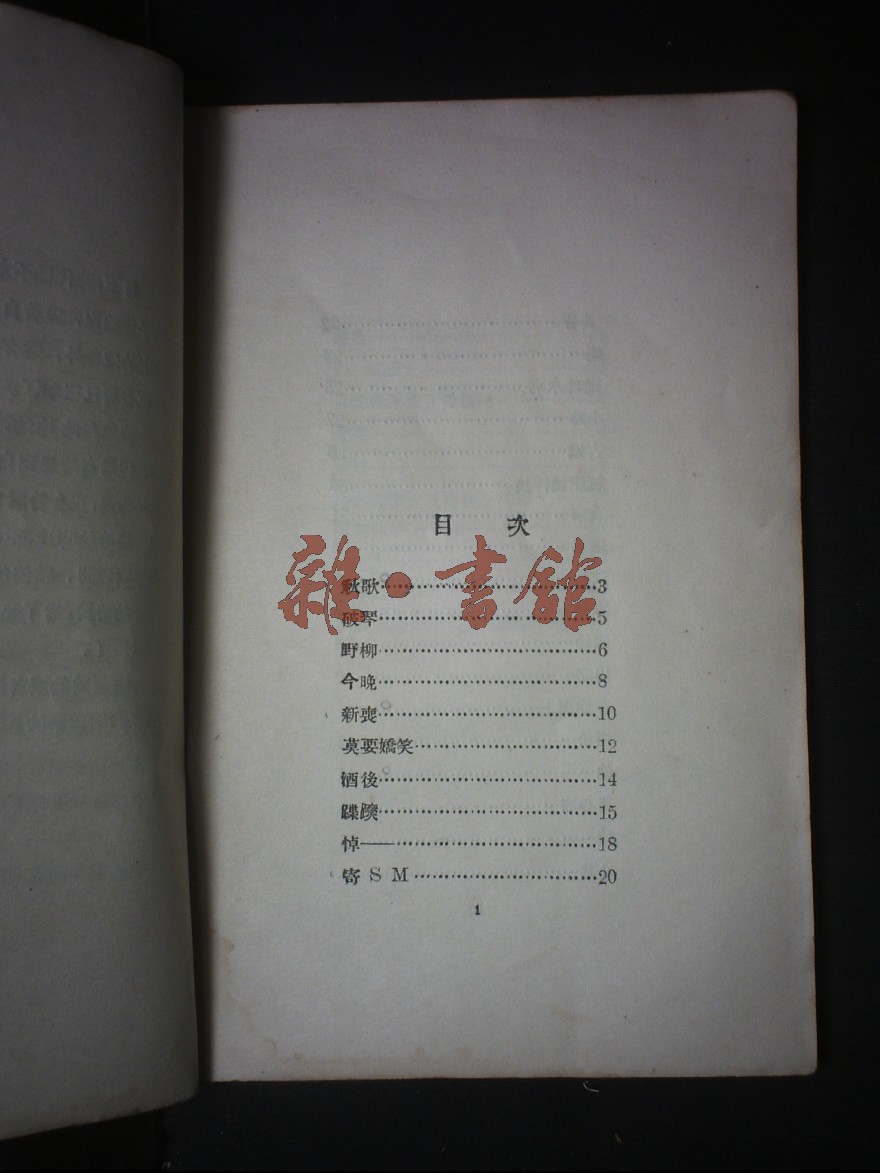 目 次
秋歌……………………………3
破琴……………………………5
野柳……………………………6
今晚……………………………8
新喪……………………………10
莫要嬌笑………………………12
酒後……………………………14
蹀躞……………………………15
悼——…………………………18
寄 S M…………………………20
1
雜·書館